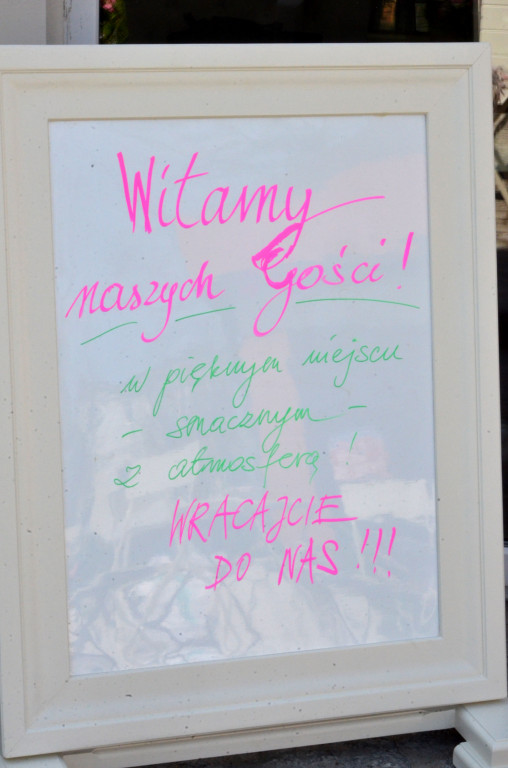 Witamy
naszych Gości!
w pięknym miejscu
- smacznym -
z atmosferą!
WRACAJCIE
DO NAS!!!